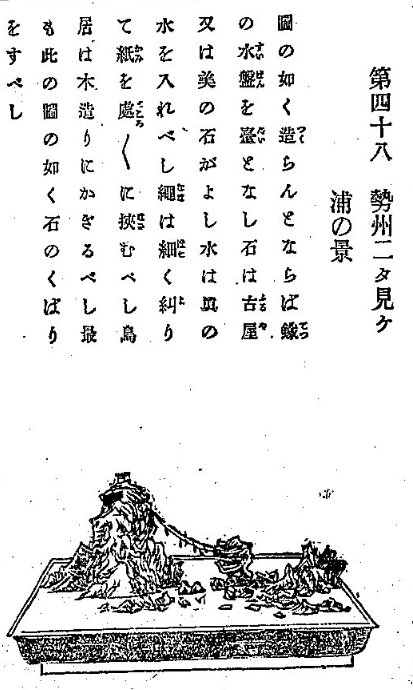 第四十八　勢州二タ見ケ
浦の景
圖の如く造らんとならば鐵
の水盤を臺となし石は古屋
又は美の石がよし水は眞の
水を入れべし繩は細く糾り
て紙を處〱に挾むべし鳥
居は木造りにかぎるべし最
も此の圖の如く石のくばり
をすべし